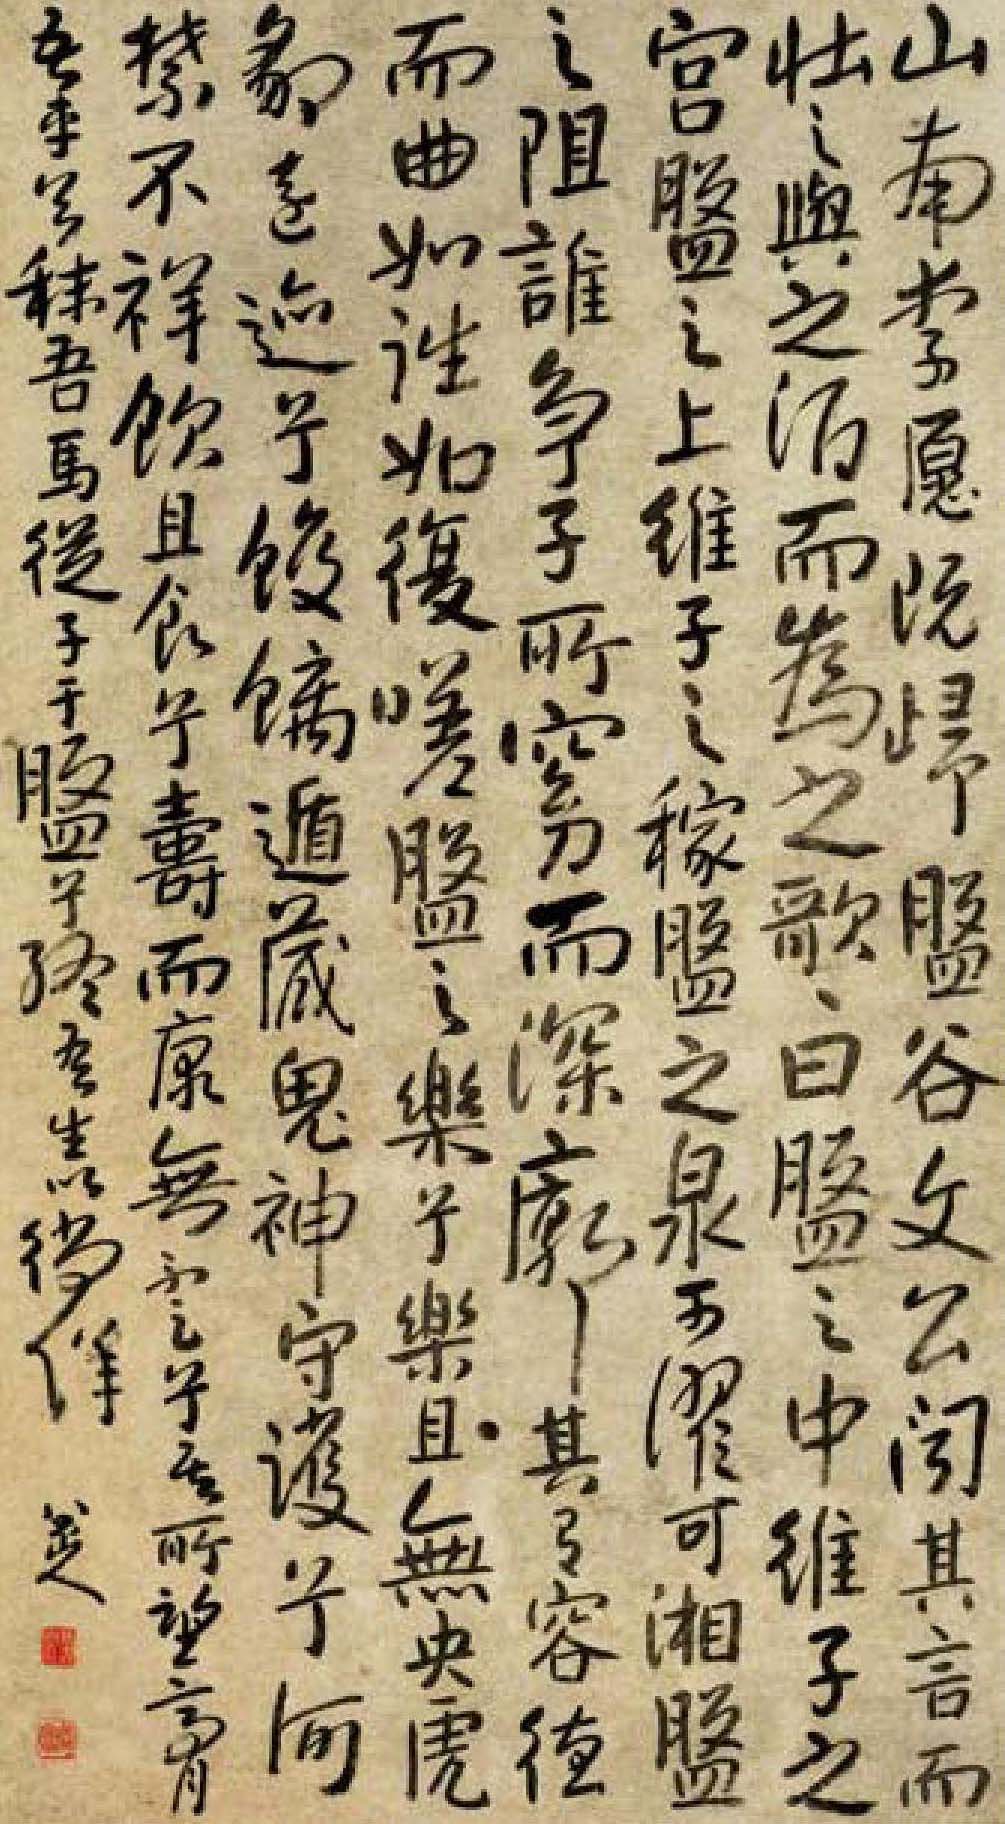 山南李愿既歸盤谷文公聞其言而
壯之與之酒而為之歌曰盤之中維子之
宮盤之上維子之稼盤之泉可濯可湘盤
之阻誰爭子所窈而深廓其有容繚
而曲如往如復嗟盤之樂兮樂且無央虎
豹遠跡兮蛟螭遁藏鬼神守護兮呵
禁不祥飲且食兮壽而康無不足兮奚所望膏
吾車兮秣吾馬從子于盤兮終吾生以徜徉
八大山人